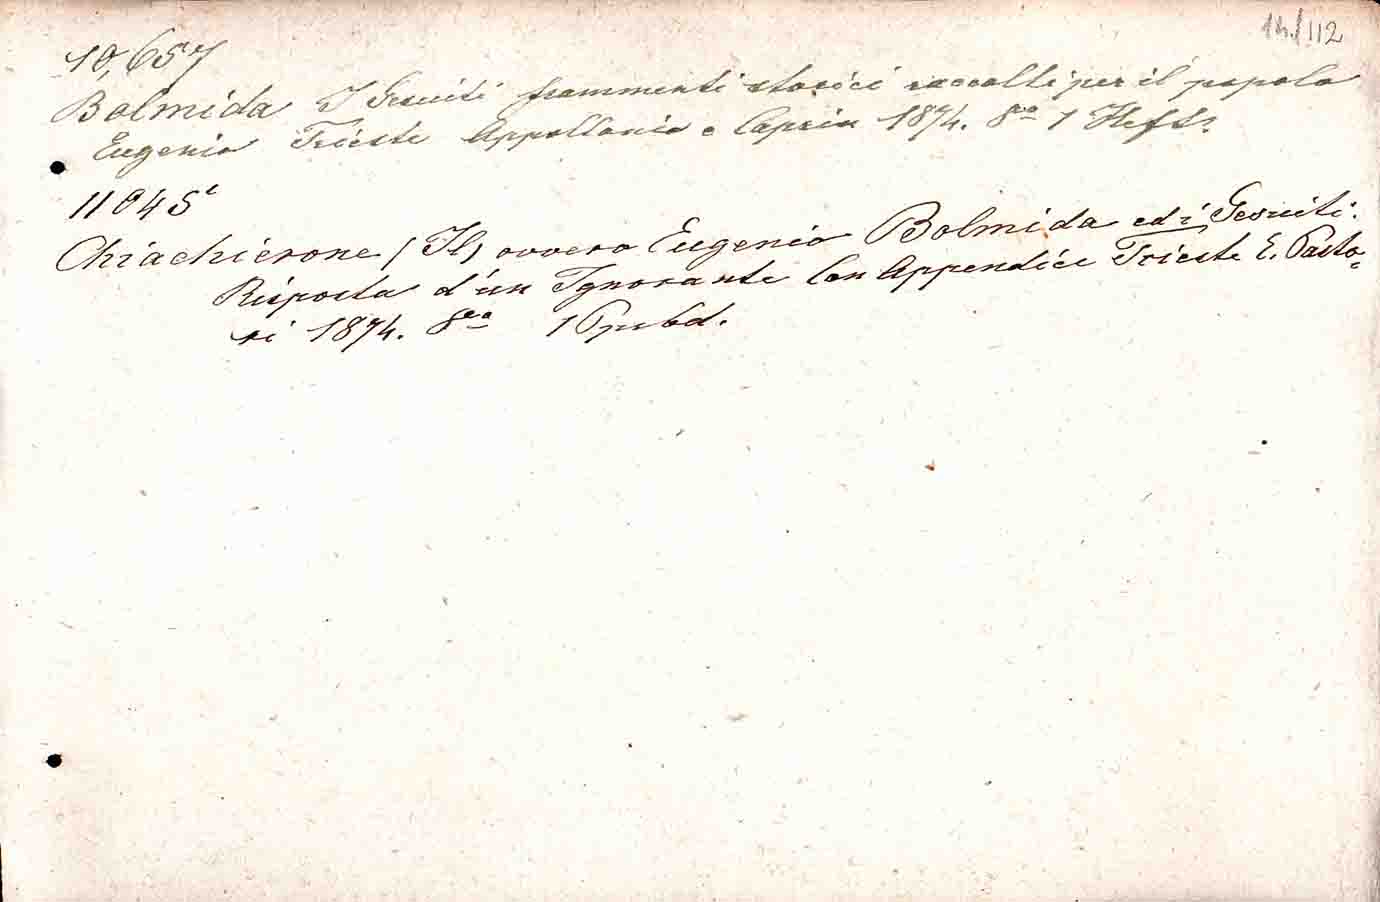 14/112
10,657
Bolmida I Gesuiti frammenti storici raccolti per il popolo
Eugenio Trieste Appollonio e Caprin 1874. 8vo 1 Heft.
11045
Chiachierone (Il) ovvero Eugenio Bolmida ed i Gesuiti.
Risposta d'un Ignorante Con Appendice Trieste E. Pasto-
ri 1874. 8vo 1 Ppbd.